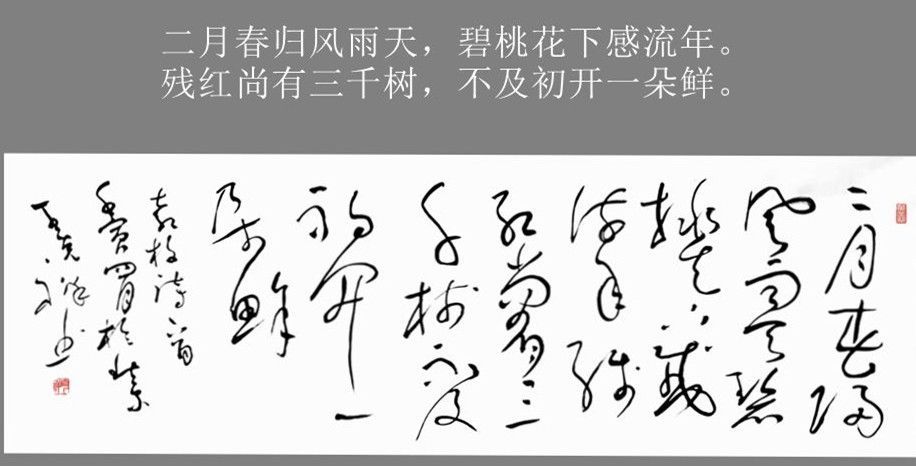 二月春归风雨天，碧桃花下感流年。
残红尚有三千树，不及初开一朵鲜。
二月春归
风雨天碧
桃花下感
流年残
红尚有三
千树不及
初开一
朵鲜
袁枚诗一首